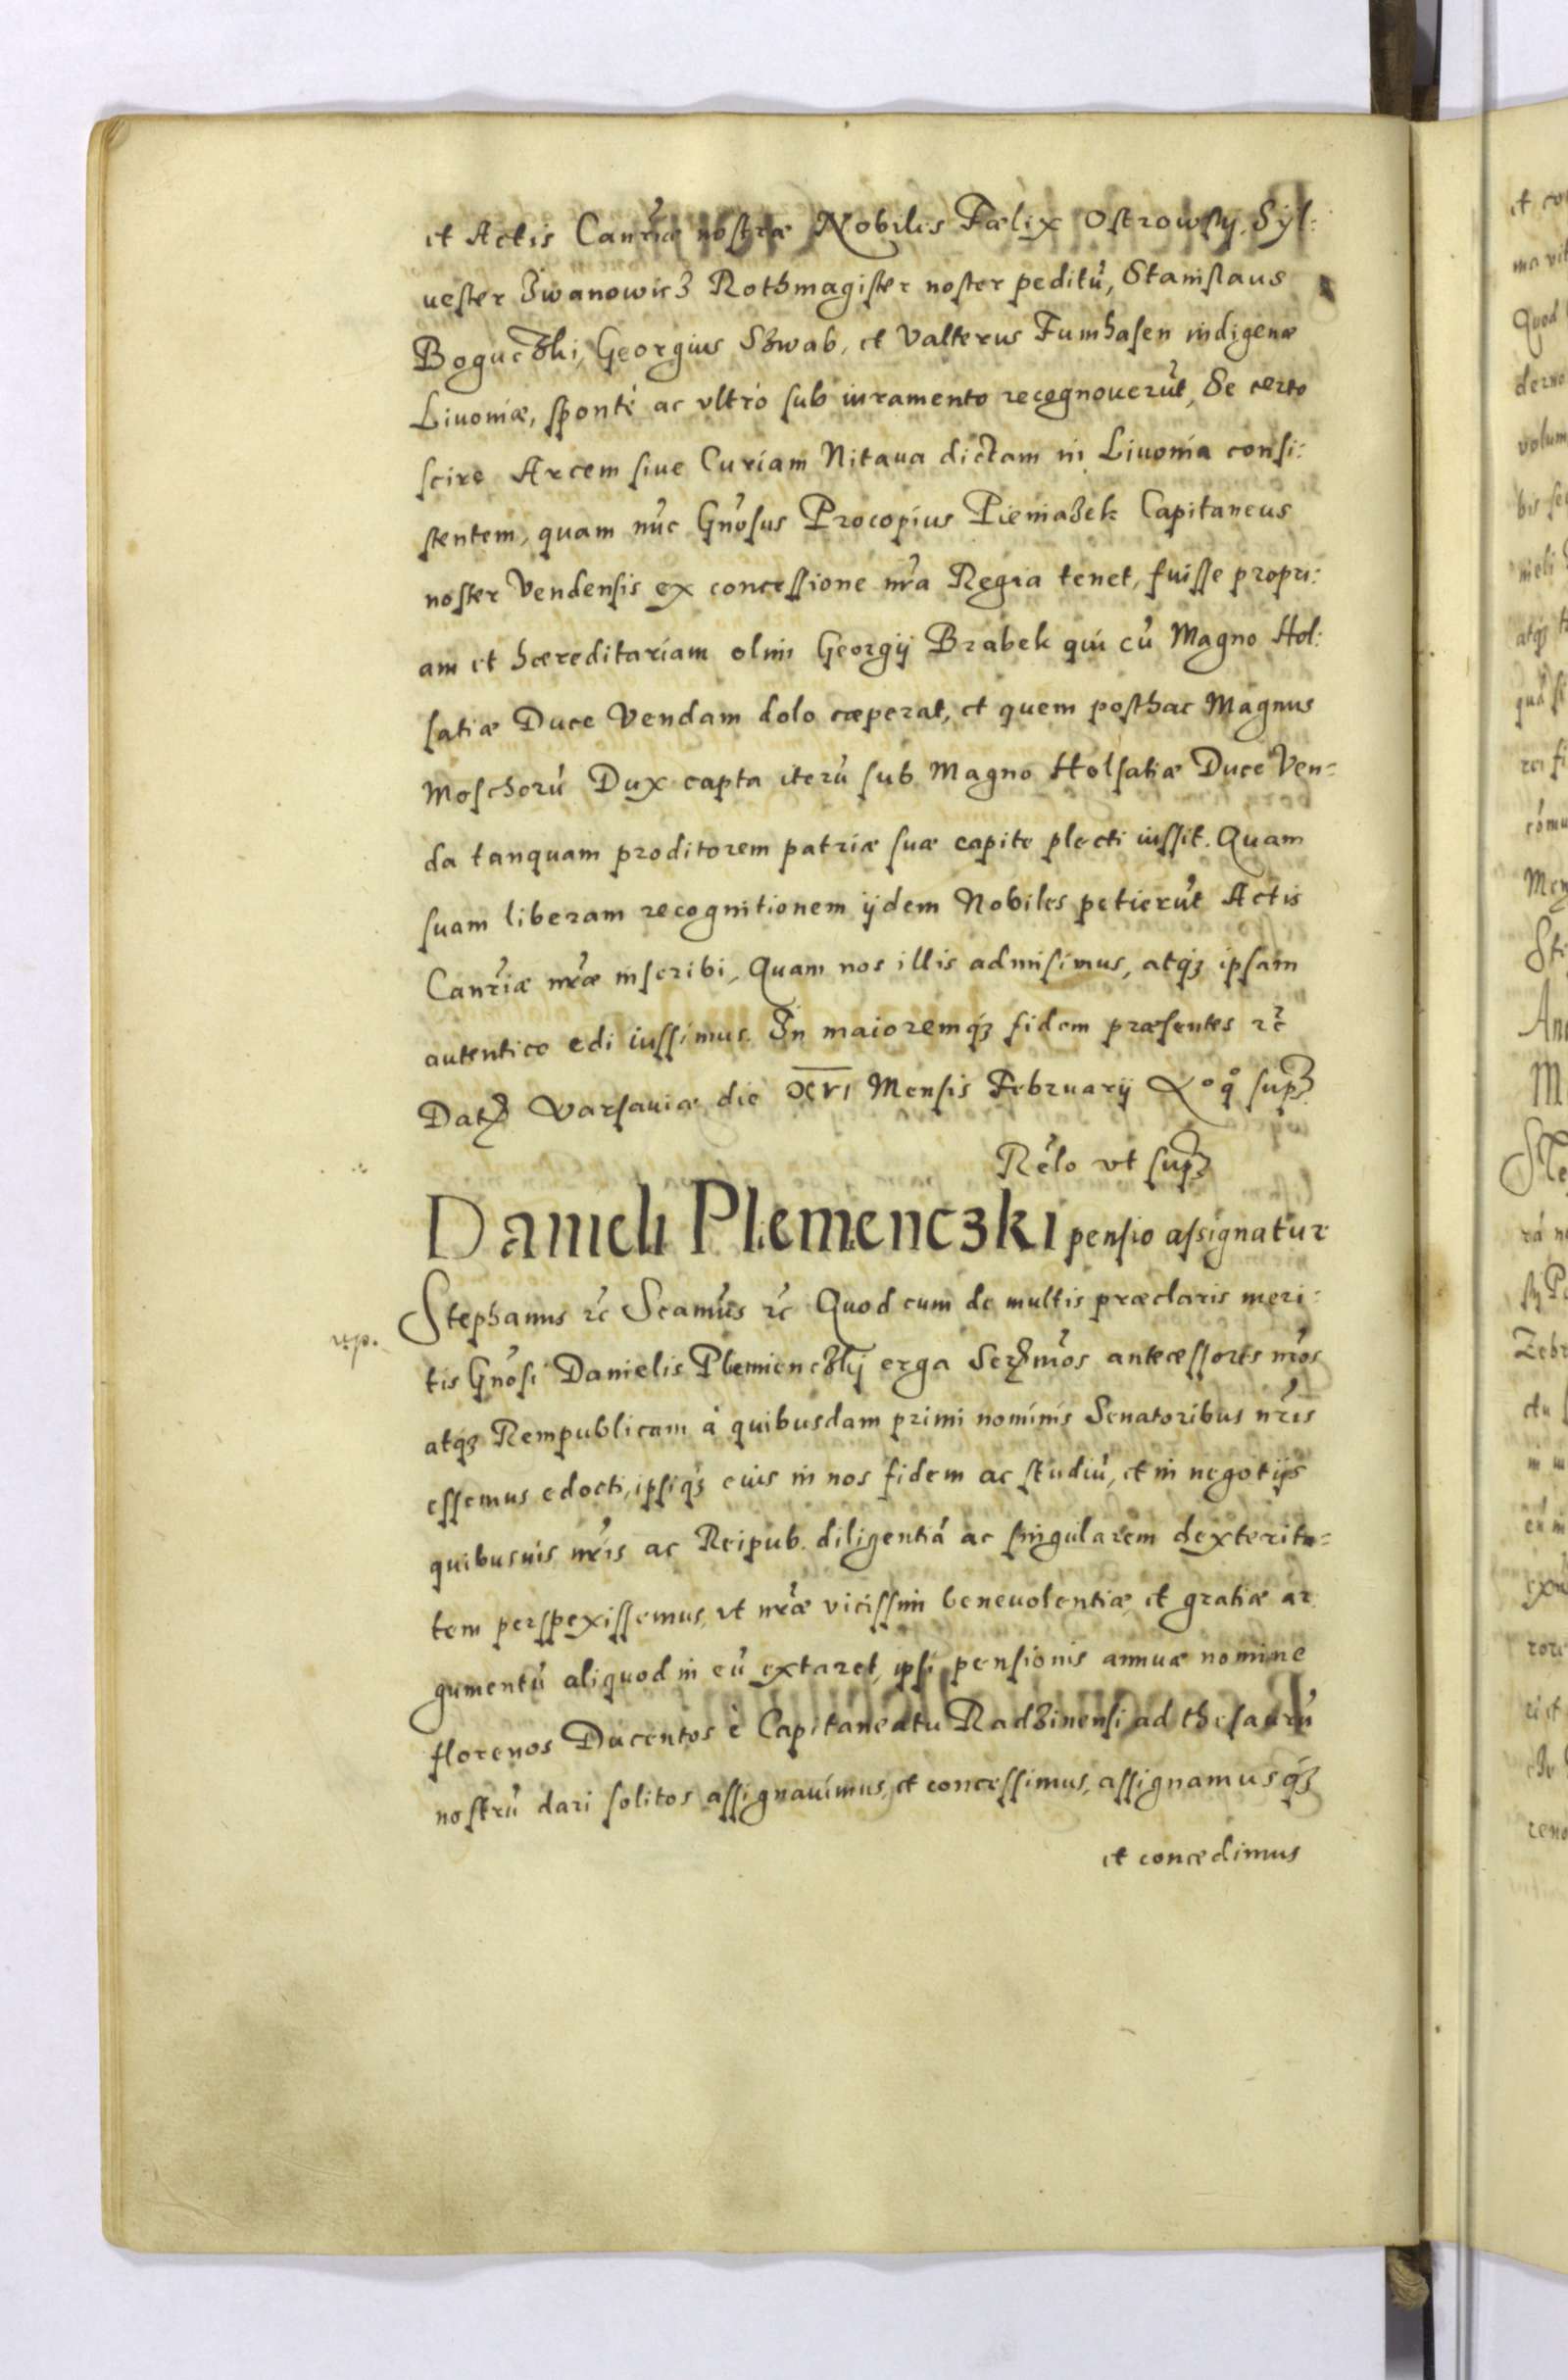 et Actis Canr̃iæ nostræ Nobiles Fælix Ostrowsky, Syl:
uester Iwanowicz Rothmagister noster peditũ, Stanislaus
Boguczki, Georgius Szwab, et Valterus Fumhasen indigenæ
Liuoniæ, sponte ac vltrò sub iuramento recognouerũt, Se certo
scire Arcem siue Curiam Nitaua dictam in Liuonia consi:
stentem, quam nũc Gñosus Procopius Pieniazek Capitaneus
noster Vendensis ex concessione nr̃a Regia tenet, fuisse propri:
am et hæreditariam olim Georgij Brabek qui cũ Magno Hol:
satiæ Duce Vendam dolo cæperat, et quem posthac Magnus
Moschorũ Dux capta iterũ sub Magno Holsatiæ Duce Ven=
da tanquam proditorem patriæ suæ capite plecti iussit. Quam
suam liberam recognitionem ijdem Nobiles petierũt Actis
Canr̃iæ nr̃æ inscribi, Quam nos illis admisimus, atqꝫ ipsam
autentice edi iussimus. In maioremqꝫ fidem præsentes rc̃
Datꝫ Varsauiæ die XVI Mensis February Aº qº supꝫ
Rẽlo vt supꝫ
Danieli Plemenczki pensio assignatur
Stephanus rc̃ Seamũs rc̃ Quod cum de multis præclaris meri:
tis Gñosi Danielis Plemienczky erga Serꝫm̃os antecessores nr̃os
atqꝫ Rempublicam à quibusdam primi nominis Senatoribus nr̃is
essemus edocti, ipsiqꝫ eius in nos fidem ac studiũ, et in negotijs
quibusuis nr̃is ac Reipub. diligentiã ac singularem dexterita=
tem perspexissemus, vt nr̃æ vicissim beneuolentiæ et gratiæ ar
gumentũ aliquod in eũ extaret, ipsi pensionis annuæ nomine
florenos Ducentos è Capitaneatu Radzinensi ad thesaurũ
nostrũ dari solitos assignauimus, et concessimus, assignamusqꝫ
et concedimus